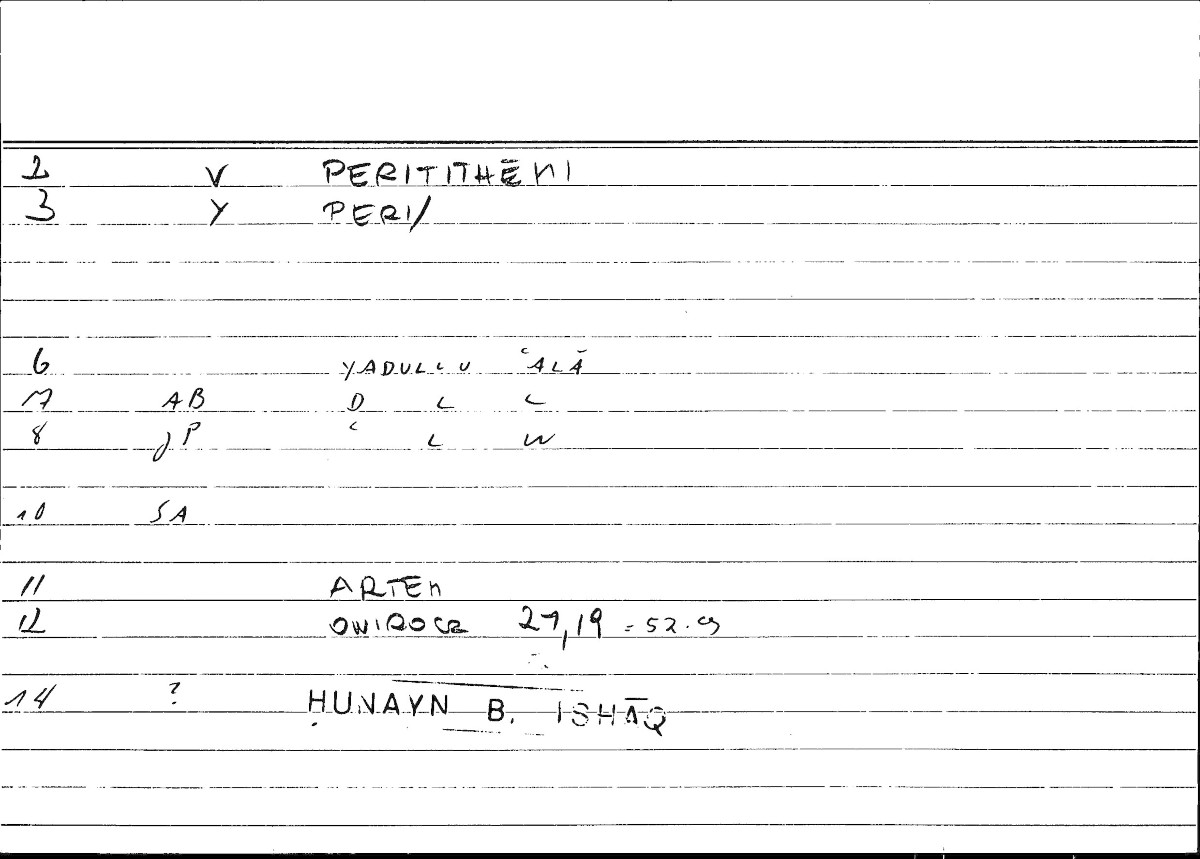 2 V PERITITHĒNI
3 Y PERI/
6 YADULLU ʿALĀ
7 AB D L L
8 JP ʿ L W
10 SA
11 ARTEM
12 ONIROCR 27,19 = 52.9
14 ? ḤUNAYN B. ISḤĀQ